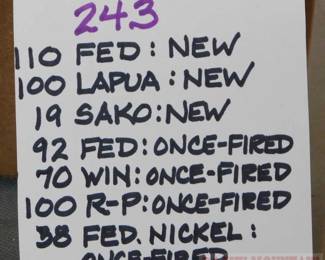 243
110 FED: NEW
100 LAPUA: NEW
19 SAKO: NEW
92 FED: ONCE-FIRED
70 WIN: ONCE-FIRED
100 R-P: ONCE-FIRED
38 FED. NICKEL:
ONCE-FIRED